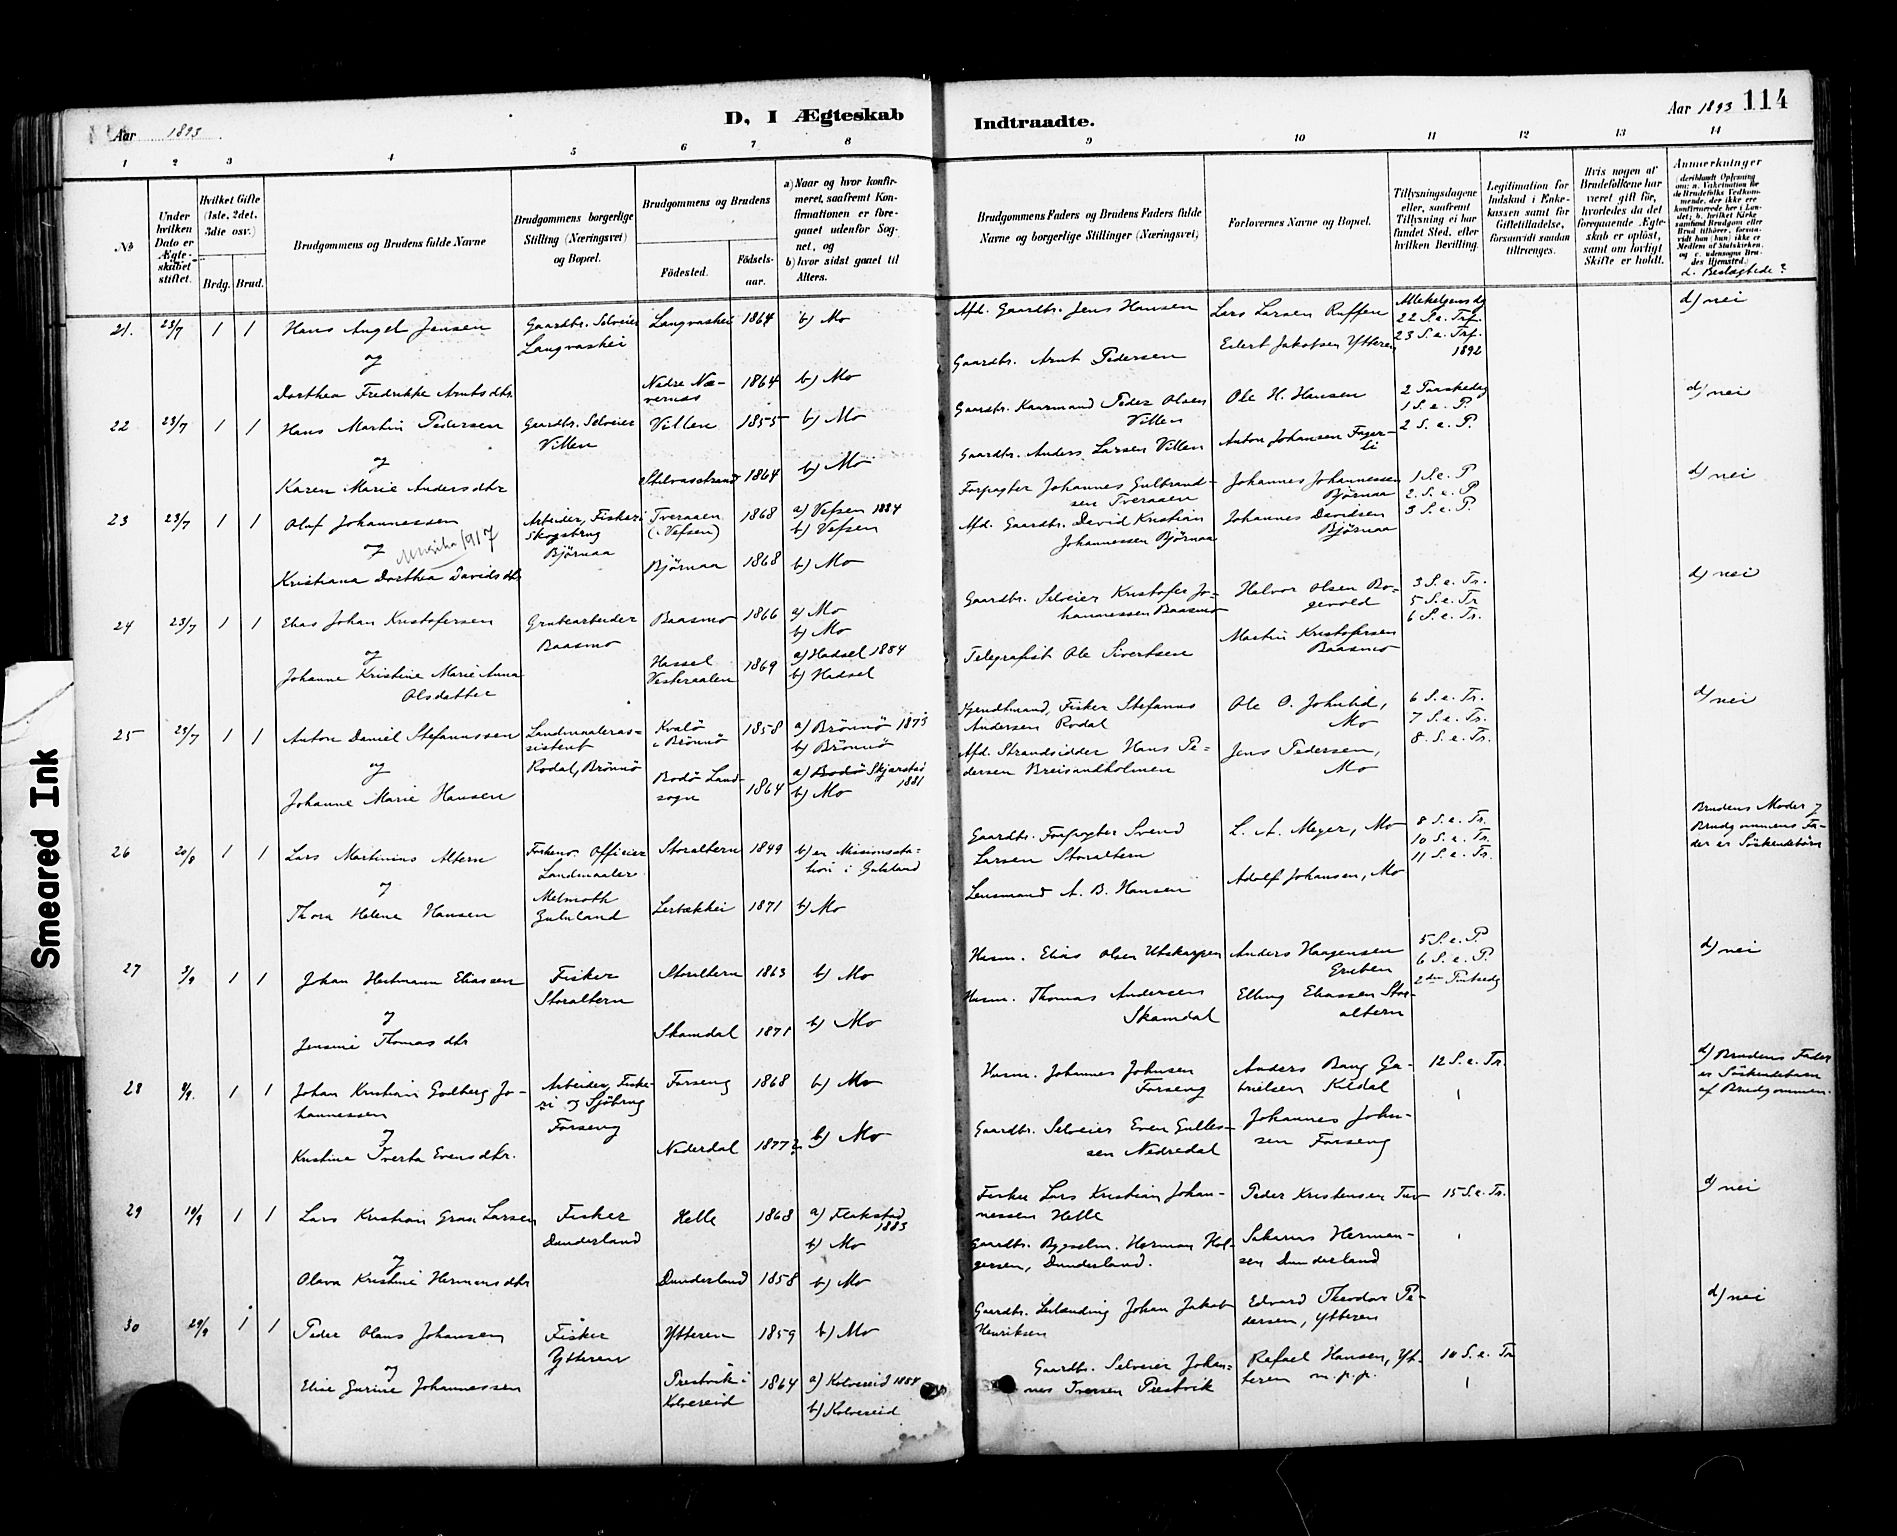 Smeared Ink
Aar 1893
D, I Ægteskab
Indtraadte.
Aar 1893 114
1 2 3 4 5 6 7 8 9 10 11 12 13 14
No
Under hvilken Dato er Ægteskabet stiftet.
Hvilket Gifte (1ste, 2det, 3die osv.)
Brdg. Brud.
Brudgommens og Brudens fulde Navne
Brudgommens borgerlige Stilling (Næringsvei) og Bopæl.
Brudgommens og Brudens
Fødested.
Fødselsaar.
a) Naar og hvor konfirmeret, saafremt Konfirmationen er foregaaet udenfor Sognet, og
b) hvor sidst gaaet til Alters.
Brudgommens Faders og Brudens Faders fulde Navne og borgerlige Stillinger (Næringsvei)
Forlovernes Navne og Bopæl.
Tillysningsdagene eller, saafremt Tillysning ei har fundet Sted, efter hvilken Bevilling.
Legitimation for Indskud i Enkekassen samt for Giftetilladelse, forsaavidt saadan tiltrænges.
Hvis nogen af Brudefolkene har været gift før, hvorledes da det foregaaende Ægteskab er opløst, samt om lovligt Skifte er holdt.
Anmerkninger
d. Beslægtede?
21. 23/7 1 1 Hans Angel Jensen
Gaardbr. Selveier
Langvashei
Langvashei 1864 b) Mo
Afd. Gaardbr. Jens Hansen
Lars Larsen Ruffen
22 S. e. Trf.
23 S. e. Trf.
1892
d) nei
og
Dorthea Fredrikke Arntsdtr.
Nedre Nævernes 1864 b) Mo
Gaardbr. Arnt Pedersen
Edert Jakobsen Ytteren
22 23/7 1 1 Hans Martin Pedersen
Gaardbr. Selveier
Villen
Villen 1855 b) Mo
Gaardbr. Kaarmand Peder Olsen
Villen
Ole H. Hansen
2 Paaskedag
1 S. e. P.
2 S. e. P.
d) nei
og
Karen Marie Andersdtr
Stilvasstrand 1864 b) Mo
Gaardbr. Anders Larsen Villen
Anton Johansen Fagerli
23 23/7 1 1 Oluf Johannessen
Arbeider, Fiskeri
Skogsbrug
Bjørnaa
Tveraaen
(i Vefsen) 1868 a) Vefsen 1884
b) Vefsen
Forpagter Johannes Gulbrandsen Tveraaen
Johannes Johannessen
Bjørnaa
1 S. e. P
2. S. e. P
3 S. e. P.
d) nei
og
1917
Kristiana Dorthea Davidsdtr
Bjørnaa 1868 b) Mo
Afd. Gaardbr. David Kristian
Johannessen Bjørnaa
Johannes Davidsen
Bjørnaa
24 23/7 1 1 Elias Johan Kristofersen
Grubearbeider
Baasmo
Baasmo 1866 a) Mo
b) Mo
Gaardbr. Selveier Kristofer Johannessen Baasmo
Halvor Olsen Bogevold
3 S. e. Tr.
5 S. e. Tr
6 S. e. Tr.
d) nei
og
Johanne Kristine Marie Anna
Olsdatter
Hassel
Vesteraalen 1869 a) Hadsel 1884
b) Hadsel
Telegrafist Ole Sivertsen
Martin Kristofersen
Baasmo
25 29/7 1 1 Anton Daniel Stefanussen
Landmaalerassistent
Rodal, Brønnø
Kvalø
i Brønnø 1858 a) Brønnø 1873
b) Brønnø
Fisker Stefanus
Andersen Rodal
Ole O. Johnlid,
Mo
6 S. e. Tr.
7 S. e. Tr.
8. S. e. Tr.
d) nei
og
Johanne Marie Hansen
Bodø Landsogn 1864 a) Bodø Skjerstad
1881
b) Mo
Afd. Strandsidder Hans Pedersen Breisandholmen
Jens Pedersen,
Mo
26 20/8 1 1 Lars Martinius Altern
Officier
Landmaaler
Melmoth
Zululand
Storaltern 1849 b) en Missionsstation i Zululand
Gaardbr. Forpagter Svend
Larsen Storaltern
L. A. Meyer, Mo
8 S. e. Tr.
10 S. e. Tr.
11 S. e. Tr.
Brudens Moder og
Brudgommens Fader er Søskendebørn
og
Thora Helene Hansen
1871 b) Mo
Lensmand A. B. Hansen
Adolf Johansen, Mo
27 3/9 1 1 Johan Hartmann Eliassen
Fisker
Storaltern
Storaltern 1863 b) Mo
Husm. Elias Olsen Utskarpen
Anders Haagensen
Gruben
5 S. e. P.
6 S. e. P
2den Pintsedg
d) nei
og
Jensine Thomasdtr
Skamdal 1871 b) Mo
Husm. Thomas Andersen
Skamdal
Elling Eliassen Storaltern
28 8/9. 1 1 Johan Kristian Godberg Johannessen
Arbeider, Fiskeri og Sjøbrug
Forseng
Forseng 1868 b) Mo
Husm. Johannes Johnsen
Forseng
Anders Bang Gabrielsen Kildal
12 S. e. Tr.
d) Brudens Fader
er Søskendebarn
af Brudgommen.
og
Kristine Iverta Evensdtr.
Nederdal 1877? b) Mo
Gaardbr. Selveier Even Gullesen Nedredal
Johannes Johnsen Forseng
29 10/9 1 1 Lars Kristian Gran Larsen
Fisker
Dunderland
Helle 1868 a) Flakstad
1883
b) Mo
Fisker Lars Kristian Johannessen Helle
Peder Kristensen
15 S. e. Tr.
d) nei
og
Olava Kristine Hermansdtr
Dunderland 1858 b) Mo
Gaardbr. Bygselm. Herman Holgersen, Dunderland.
Sakarias Hermansen Dunderland
30 29/9 1 1 Peder Olaus Johansen
Fisker
Ytteren
Ytteren 1859 b) Mo
Gaardbr. Leilænding Johan Jakob
Henriksen
Edvard Theodor Pedersen, Ytteren
d) nei
og
Elise Gurine Johannessen
Prestvik i
Kolvereid 1864 a) Kolvereid 1884
b) Kolvereid
Gaardbr. Selveier Johannes Iversen Prestvik
Refael Hansen, Ytteren m. p. p.
10 S. e. Tr